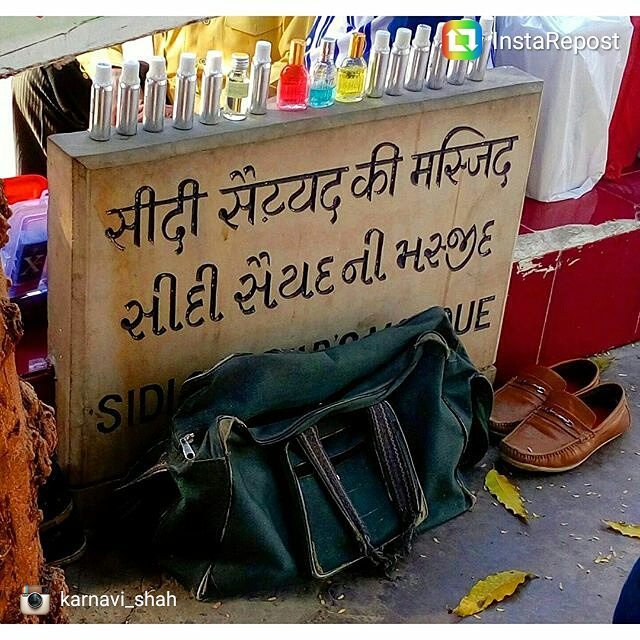 InstaRepost
सीदी सैय़्यद की मस्जिद
સીદી સૈયદ ની મસ્જીદ
SIDI
karnavi_shah